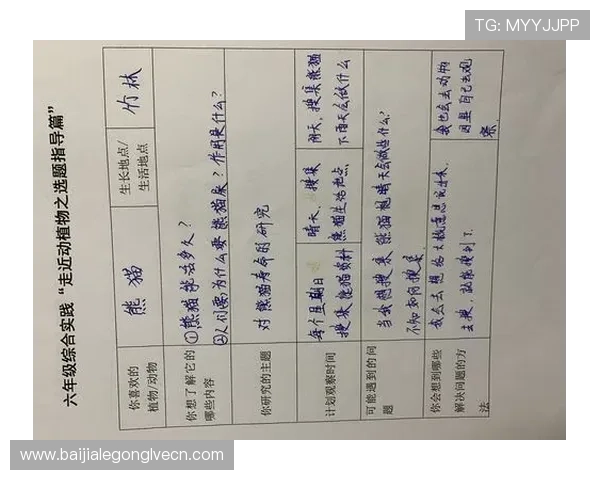 TG: MYYJJPP
六年级综合实践“走近动植物之选题指导篇”
你喜欢的
植物/动物
熊猫
生长地点/
生活地点
竹林
你想了解它的
哪些内容
①熊猫能活多久?
②人们要为什么要熊猫家?作用是什么?
你研究的主题
对熊猫寿命的研究
计划观察时间
每个星期日
搜集熊猫资料
晴天,搜集
熊猫生活地点
阴天,搜集熊猫
下雨天会做什么
可能遇到的问
题
当我想搜集熊猫晴天会做些什么?
不知如何搜集
你会想到哪些
解决问题的方
法
我会去
去搜,就能搜到了.
我也会去动物
园里自己去观
察.
www.baijialegonglvecn.com